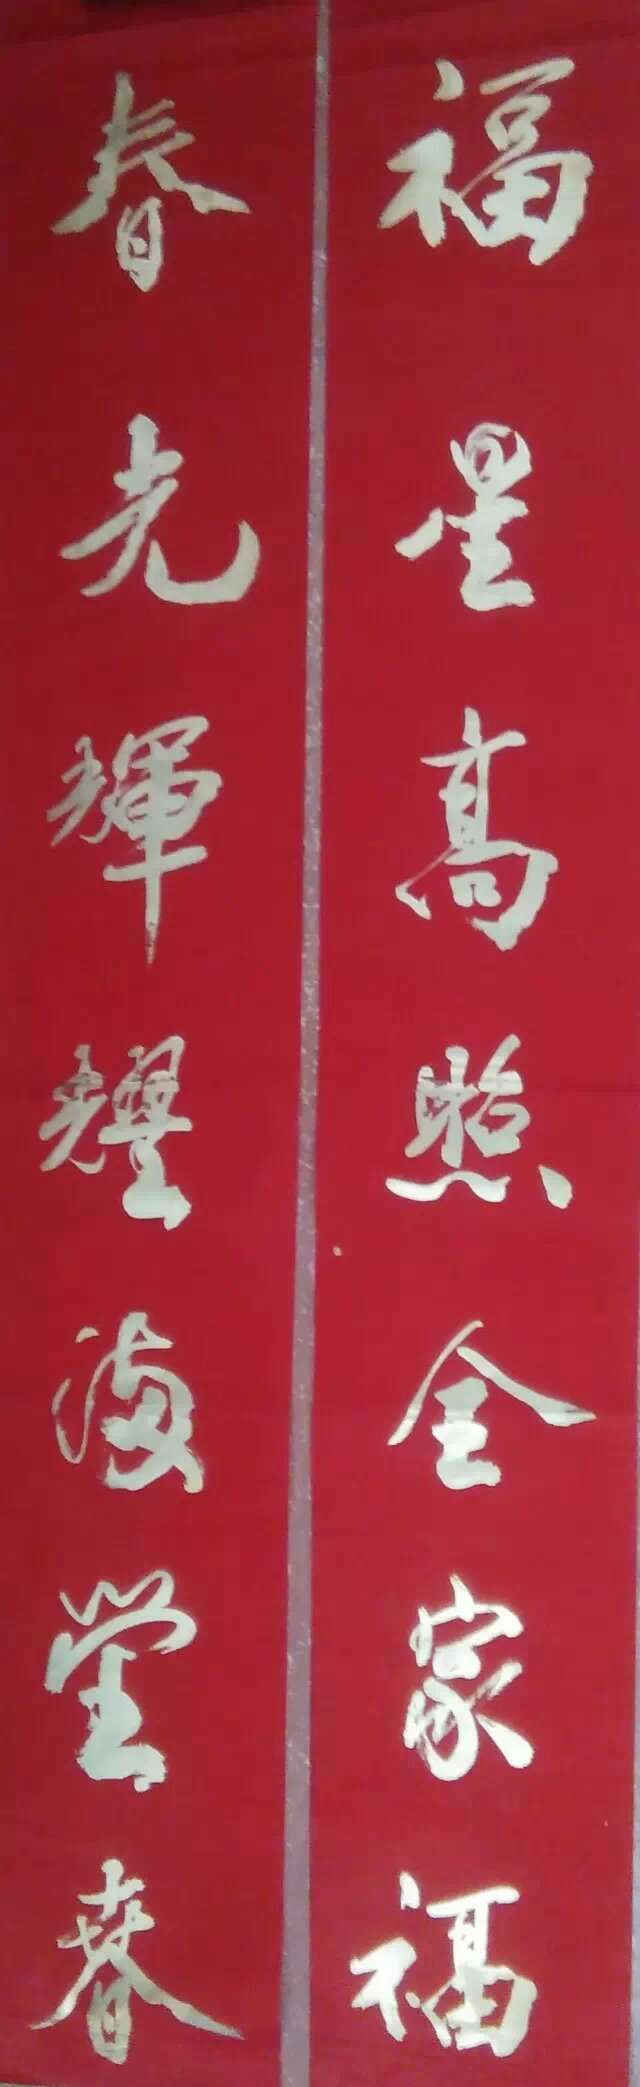 福星高照全家福
春光輝耀滿堂春